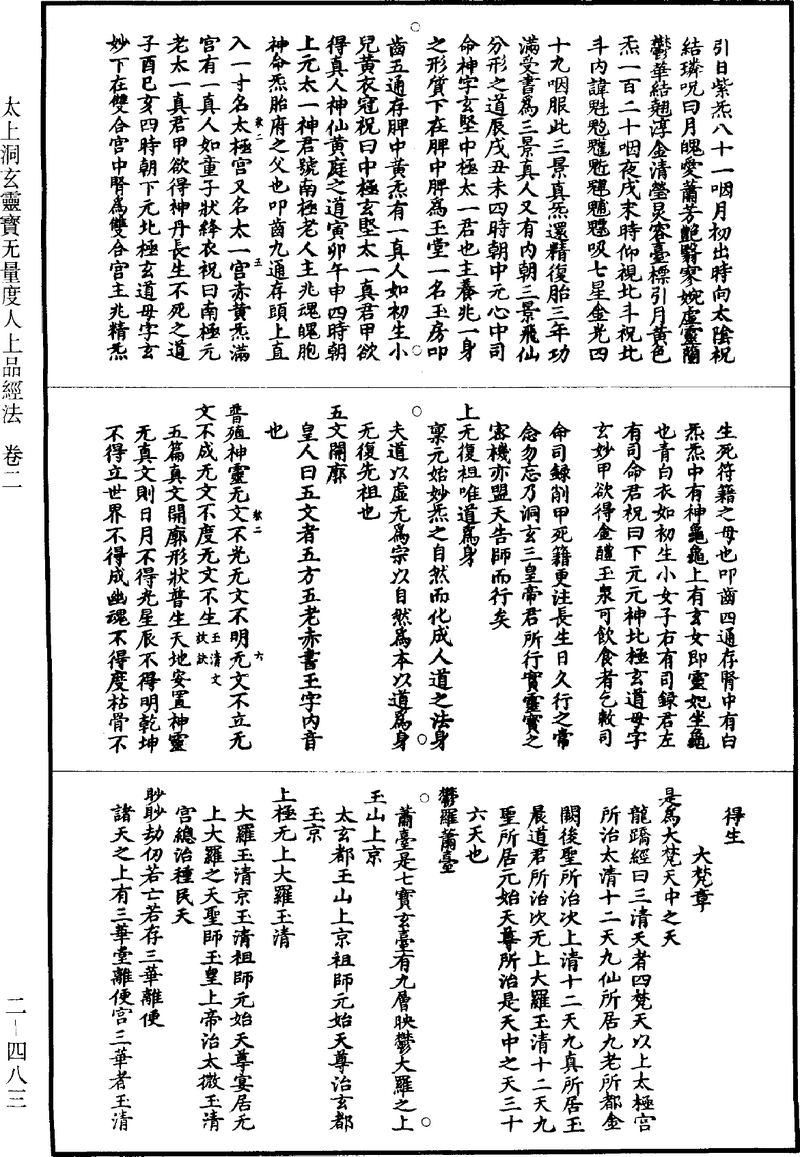 引日紫炁八十一咽月初出時向太陰祝
結璘呪曰月魄曖蕭芳艷翳寥婉虛靈蘭
鬱華結翹淳金清瑩炅容臺標引月黃色
炁一百二十咽夜戌末時仰視北斗祝北
斗內諱魁𩲃䰢魓䰡魒吸七星金光四
十九咽服此三景真炁還精復胎三年功
滿受書為三景真人又有內朝三景飛仙
分形之道辰戌丑未四時朝中元心中司
命神字玄堅中極太一君也主養兆一身
之形質下在脾中脾為玉堂一名玉房叩
齒五通存脾中黃炁有一真人如初生小
兒黃衣冠祝曰中極玄堅太一真君甲欲
得真人神仙黃庭之道寅卯午申四時朝
上元太一神君號南極老人主兆魂魄胞
神命炁胎府之父也叩齒九通存頭上直
入一寸名太極宮又名太一宮赤黃炁滿
宮有一真人如童子狀絳衣祝曰南極元
老太一真君甲欲得神丹長生不死之道
子酉巳亥四時朝下元北極玄道母字玄
妙下在雙合宮中腎為雙合宮主兆精炁
生死符籍之母也叩齒四通存腎中有白
炁炁中有神龜龜上有玄女即靈妃坐龜
也青白衣如初生小女子右有司録君左
有司命君祝曰下元元神北極玄道母字
玄妙甲欲得金醴玉泉可飲食者乞敕司
命司録削甲死籍更注長生日久行之常
念勿忘乃洞玄三皇帝君所行實靈寶之
密機亦盟天告師而行矣
上无復祖唯道為身
稟元始妙炁之自然而化成人道之法身
夫道以虛无為宗以自然為本以道為身
无復先祖也
五文開廓
皇人曰五文者五方五老赤書玉字內音
也
普殖神靈无文不光无文不明无文不立无
文不成无文不度无文不生玉清文
五篇真文開廓形狀普生天地安置神靈
无真文則日月不得光星辰不得明乾坤
不得立世界不得成幽魂不得度枯骨不
得生
大梵章
是為大梵天中之天
龍蹻經曰三清天者四梵天以上太極宮
所治太清十二天九仙所居九老所都金
闕後聖所治次上清十二天九真所居玉
晨道君所治次无上大羅玉清十二天九
聖所居元始天尊所治是天中之天三十
六天也
鬱羅蕭臺
蕭臺是七寶玄臺有九層映鬱大羅之上
玉山上京
太玄都玉山上京祖師元始天尊治玄都
玉京
上極无上大羅玉清
大羅玉清京玉清祖師元始天尊宴居无
上大羅之天聖師玉皇上帝治太微玉清
宮總治種民天
眇眇劫仞若亡若存三華離便
諸天之上有三華堂離便宮三華者玉清
太上洞玄靈寶无量度人上品經法 卷二
二-四八三